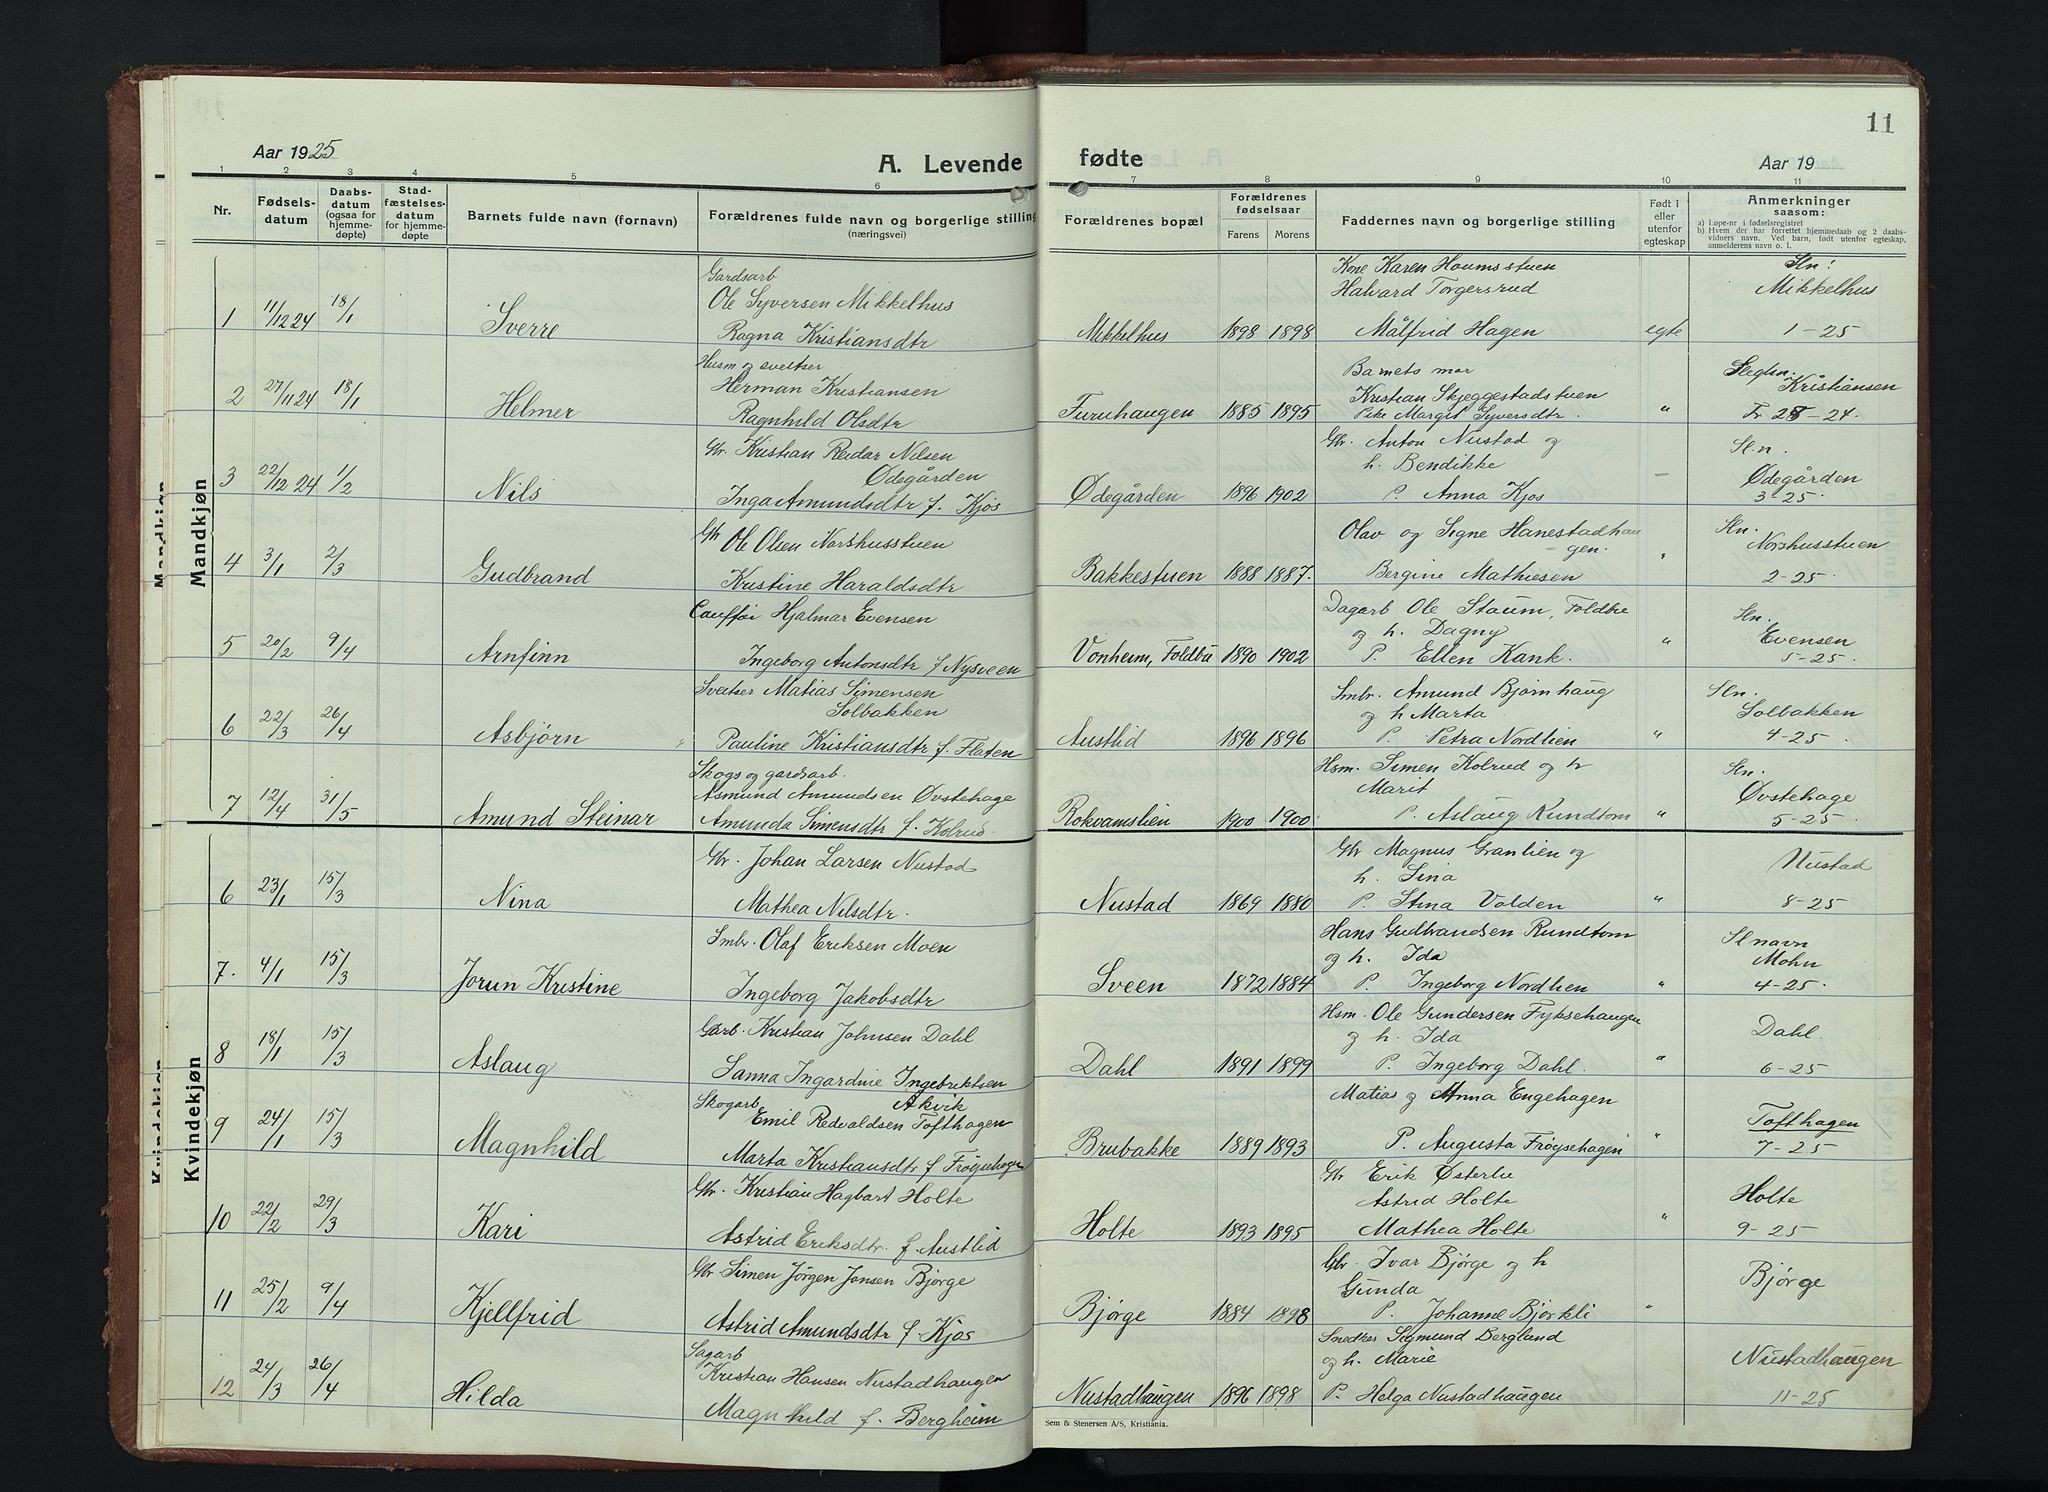 11
Aar 1925
A. Levende fødte
Aar 19
1 2 3 4 5 6 7 8 9 10 11
Nr.
Fødsels-datum
Daabs-datum (ogsaa for hjemme-døpte)
Stad-fæstelses-datum for hjemme-døpte
Barnets fulde navn (fornavn)
Forældrenes fulde navn og borgerlige stilling (næringsvei)
Forældrenes bopæl
Forældrenes fødselsaar
Farens Morens
Faddernes navn og borgerlige stilling
Født i eller utenfor egteskap
Anmerkninger saasom:
a) Løpe-nr i fødselsregistret
b) Hvem der har forrettet hjemmedaab og 2 daabs-vidners navn. Ved barn, født utenfor egteskap, anmelderens navn o. l.
Mandkjøn
Mandkjøn
Gardsarb Kone Karen Houmsstuen Sln:
Ole Syversen Mikkelhus Halvard Torgersrud Mikkelhus
1 11/12 24 18/1 Sverre Ragna Kristiansdtr Mikkelhus 1898 1898 Målfrid Hagen egte 1-25
Husm og sveitser Barnets mor Slegtsn:
Herman Kristiansen Kristian Skjeggestadstuen Kristiansen
2 27/11 24 18/1 Helmer Ragnhild Olsdtr Furuhaugen 1885 1895 Pike Margit Syversdtr. " Fr 28-24.
Gbr. Kristian Reidar Nilsen Gbr. Anton Nustad og Sl.n.
Ødegården h. Bendikke Ødegården
3 22/12 24 1/2 Nils Inga Amundsdtr f. Kjos Ødegården 1896 1902 P. Anna Kjos — 3-25.
Gbr Ole Olsen Norshusstuen Olav og Signe Hanestadhau Sln.
gen. Norshusstuen
4 3/1 2/3 Gudbrand Kristine Haraldsdtr Bakkestuen 1888 1887. Bergine Mathiesen " 2-25.
Cauffør Hjalmar Evensen Dagarb Ole Staum, Foldbu Sln.
og h. Dagny Evensen
5 20/2 9/4 Arnfinn Ingeborg Antonsdtr f Nysveen Vonheim, Foldbu 1890 1902 P. Ellen Kank. " 5-25.
Sveitser Matias Simensen Smbr. Amund Bjørnhaug Sln.
Solbakken og h Marta Solbakken
6 22/3 26/4 Asbjørn Pauline Kristiansdtr f Flaten Austlid 1896 1896 P. Petra Nordlien " 4-25.
Skogs og gardsarb. Hsm. Simen Kolrud og h Sln.
Asmund Amundsen Øvstehage Marit Øvstehage
7 12/4 31/5 Amund Steinar Amunda Simensdtr f. Kolrud. Rokvamslien 1900 1900. P. Aslaug Rundtom " 5-25.
Kvindekjøn
Kvindekjøn
Gbr. Johan Larsen Nustad Gbr Magnus Granlien og Nustad
h. Sina
6 23/1 15/3 Nina Mathea Nilsdtr. Nustad 1869 1880 P. Stina Volden " 8-25
Smbr. Olaf Eriksen Moen Hans Gudbrandsen Rundtom Sl navn
og h. Ida Mohn
7. 4/1 15/3 Jorun Kristine Ingeborg Jakobsdtr Sveen 1872 1884 P. Ingeborg Nordlien " 4-25.
Garb. Kristian Johnsen Dahl Hsm. Ole Gundersen Fyksehaugen Dahl.
og h. Ida
8 18/1 15/3 Aslaug Sanna Ingardine Ingebriktsen Dahl 1891 1899 P. Ingeborg Dahl. " 6-25
Skogarb Akvik Matias og Anna Engehagen
Emil Redvaldsen Tofthagen Tofthagen
9 24/1 15/3 Magnhild Marta Kristiansdtr f Frøysehagen Brubakke 1889 1893 P. Augusta Frøysehagen " 7-25
Gbr. Kristian Hagbart Holte Gbr Erik Østerlie Holte
Astrid Holte
10 22/2 29/3 Kari Astrid Eriksdtr. f. Austlid Holte 1893 1895 Mathea Holte " 9-25
Gbr Simen Jørgen Jonsen Bjørge Gbr. Ivar Bjørge og h Bjørge
Gunda
11 25/2 9/4 Kjellfrid Astrid Amundsdtr f. Kjos Bjørge 1884 1898 P. Johanne Bjørkli "
Sagarb Snedker Sigmund Berglund
Kristian Hansen Nustadhaugen og h. Marie Nustadhaugen
12 24/3 26/4 Hilda Magnhild f. Bergheim Nustadhaugen 1896 1898 P. Helga Nustadhaugen 11-25
Sem & Stenersen A/S, Kristiania.